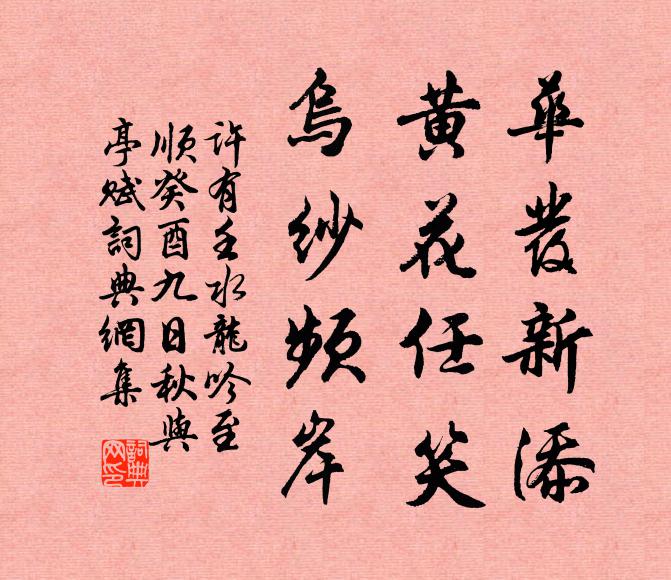 華發新添
黃花任笑
烏紗頻岸
許有壬水龍吟至
順癸酉九日秋與
亭賦詞典網集
詞典網印